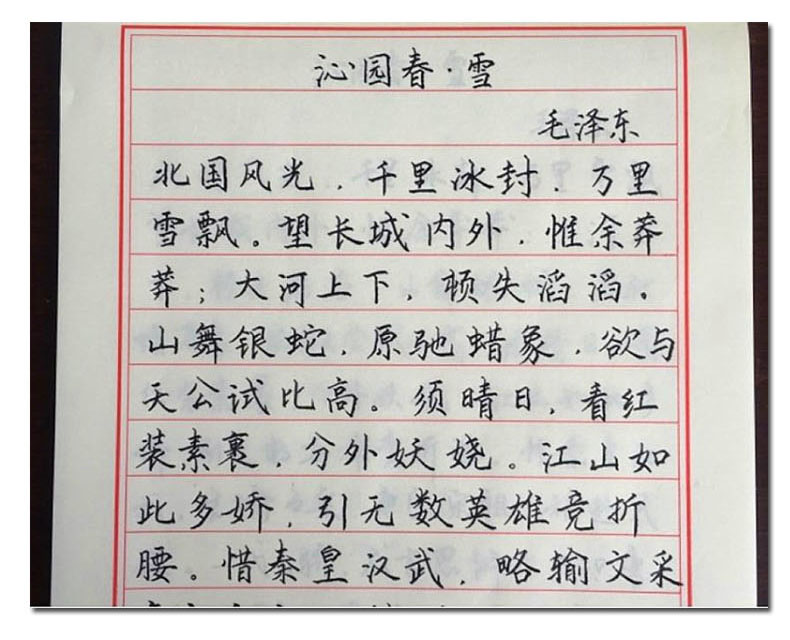 沁园春·雪
毛泽东
北国风光，千里冰封，万里
雪飘。望长城内外，惟余莽
莽；大河上下，顿失滔滔。
山舞银蛇，原驰蜡象，欲与
天公试比高。须晴日，看红
装素裹，分外妖娆。江山如
此多娇，引无数英雄竞折
腰。惜秦皇汉武，略输文采